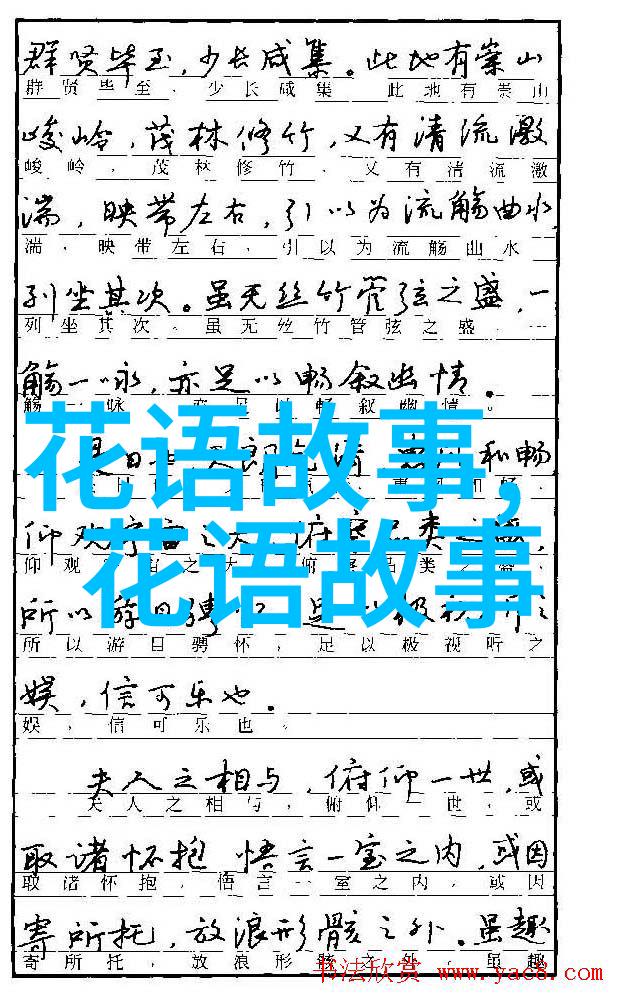 群贤毕至，少长咸集。此地有崇山
群贤毕至，少长咸集。此地有崇山
峻岭，茂林修竹，又有清流激
峻岭，茂林修竹，又有清流激
湍，映带左右，引以为流觞曲水，
湍，映带左右，引以为流觞曲水
列坐其次。虽无丝竹管弦之盛，一
列坐其次。虽无丝竹管弦之盛，一
觞一咏，亦足以畅叙幽情。
觞一咏，亦足以畅叙幽情。
花语故事，
是日 和畅
仰观宇 之大 类之
仰观 之大 俯 品类之
花语故事
所以游目骋
所以游目骋怀，足以极视听之
娱，信可乐也。
娱，信可乐也。
夫人之相与，俯仰一世，或
夫人之相与，俯仰一世，或
取诸怀抱 悟言一室之内，或因
取诸怀抱，悟言一室之内，或因
寄所托，放浪形骸之外。虽趣
寄所托，放浪形骸之外。虽趣
书法欣赏 www.yac8.com